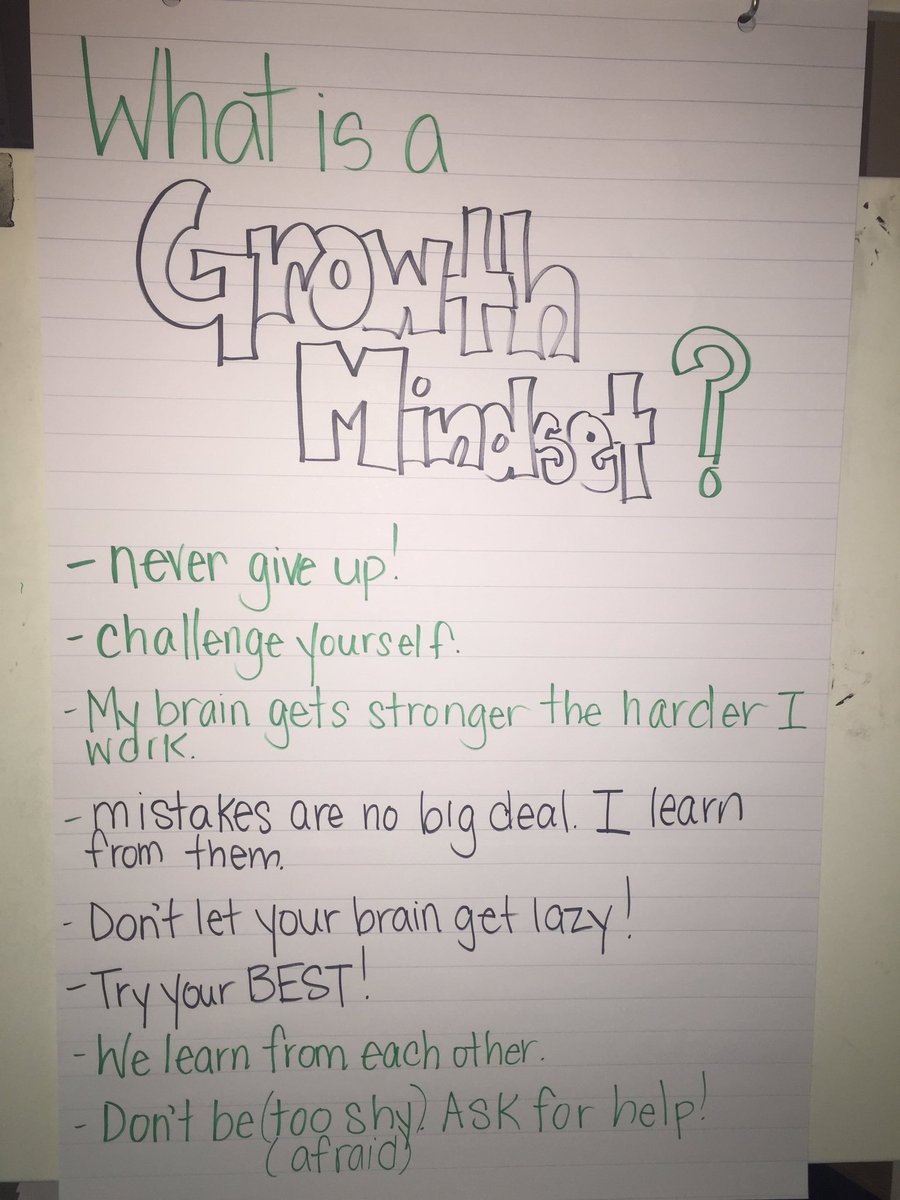 What is a
Growth
Mindset?
- never give up!
- challenge yourself.
- My brain gets stronger the harder I
work.
- mistakes are no big deal. I learn
from them.
- Don't let your brain get lazy!
- Try your BEST!
- We learn from each other.
- Don't be (too shy). ASK for help!
(afraid)